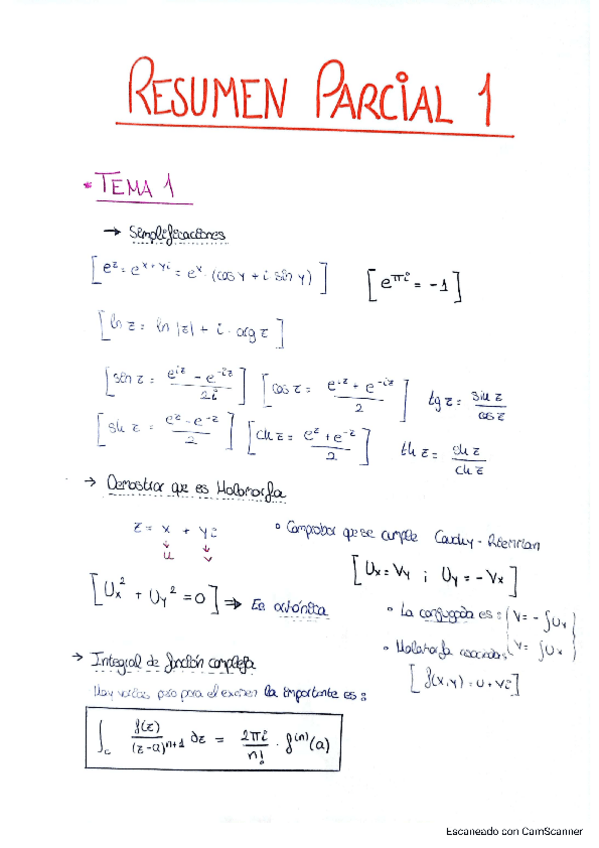 RESUMEN PARCIAL 1
• TEMA 1
→ Simplificaciones
[e^z = e^{x+yi} = e^x · (cos y + i sin y)] [e^{πi} = -1]
[ln z = ln |z| + i · arg z]
[sin z = (e^{iz} - e^{-iz})/2i] [cos z = (e^{iz} + e^{-iz})/2] tg z = sin z/cos z
[sh z = (e^z - e^{-z})/2] [ch z = (e^z + e^{-z})/2] th z = sh z/ch z
→ Demostrar que es Holomorfa
z = x + yi
↓ ↓
u v
• Comprobar que se cumple Cauchy-Riemman
[Ux = Vy ; Uy = -Vx]
[Ux² + Uy² = 0] ⇒ Es armónica
• La conjugada es: (V = -∫Uy
V = ∫Ux)
• Holomorfa asociada
[f(x,y) = u + vi]
→ Integral de función compleja
Hay varias pero para el examen la importante es:
∫c f(z)/(z-a)^{n+1} dz = 2πi/n! · f^{(n)}(a)
Escaneado con CamScanner